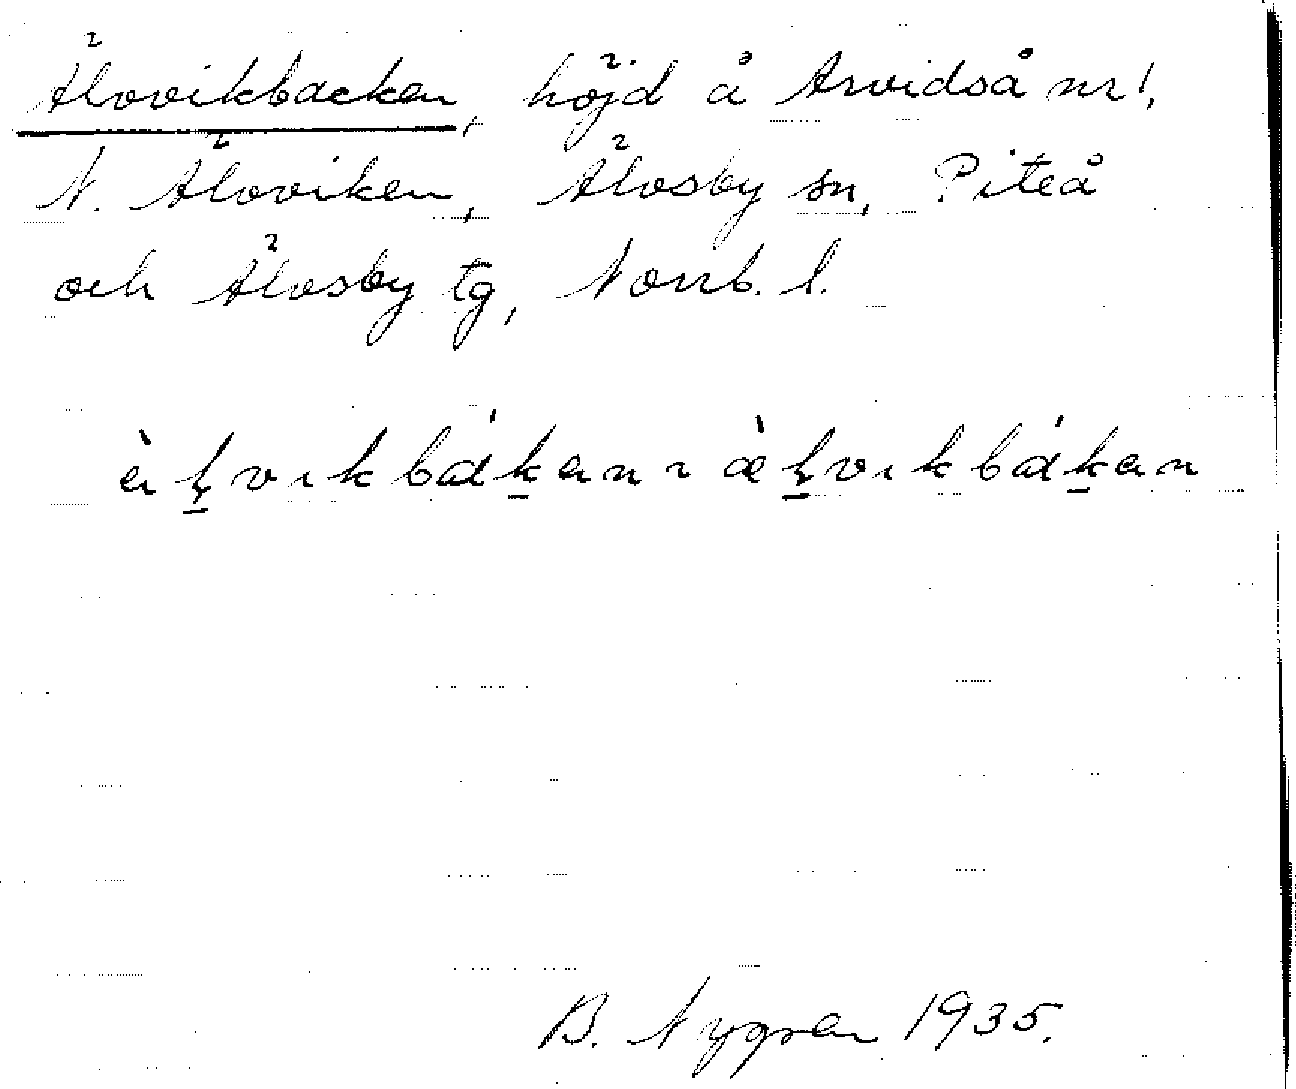 Älvvikbacken, höjd å Arvidså nr 1,
N. Älvviken, Älvsby sn, Piteå
och Älvsby tg, Norrb. l.
B. Nygren 1935.